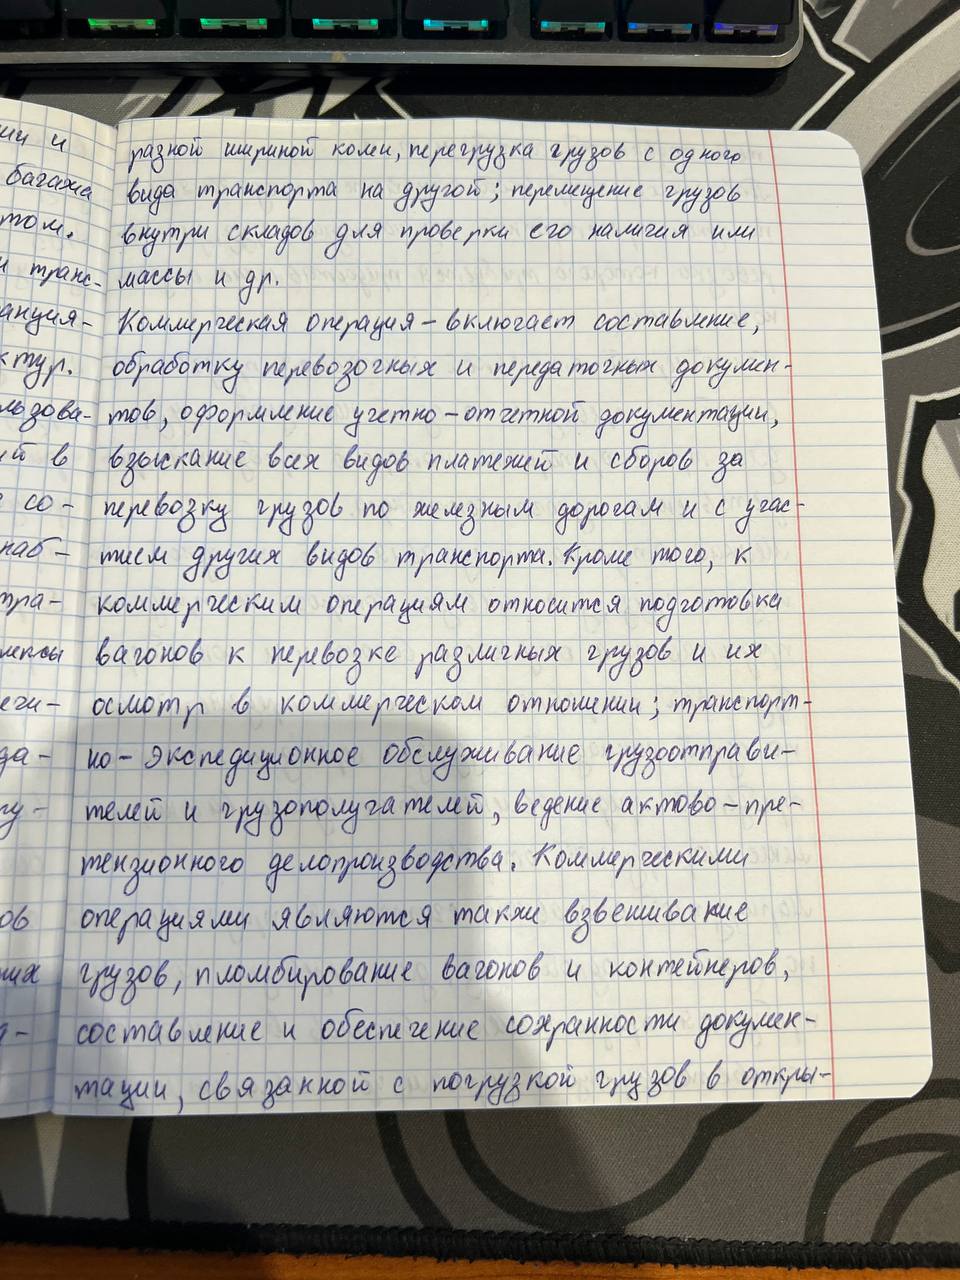 разной шириной колеи, перегрузка грузов с одного
вида транспорта на другой; перемещение грузов
внутри складов для проверки его наличия или
массы и др.
Коммерческая операция – включает составление,
обработку перевозочных и передаточных докумен-
тов, оформление учетно-отчетной документации,
взыскание всех видов платежей и сборов за
перевозку грузов по железным дорогам и с учас-
тием других видов транспорта. Кроме того, к
коммерческим операциям относится подготовка
вагонов к перевозке различных грузов и их
осмотр в коммерческом отношении; транспорт-
но-экспедиционное обслуживание грузоотправи-
телей и грузополучателей, ведение актово-пре-
тензионного делопроизводства. Коммерческими
операциями являются также взвешивание
грузов, пломбирование вагонов и контейнеров,
составление и обеспечение сохранности докумен-
тации, связанной с погрузкой грузов в откры-
и
багажа
том.
транс-
ктур.
в
со-